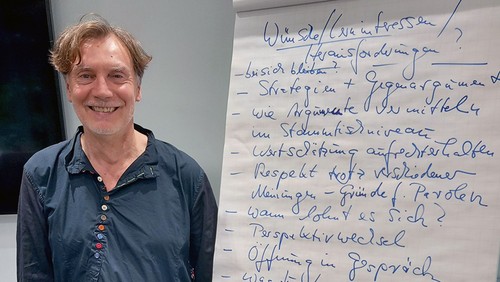 Wünsche/Lerninteressen/
Herausforderungen ?
- bei sich bleiben?
- Strategien + Gegenargumente
- wie Argumente vermitteln
im Stammtischniveau
- Wertschätzung aufrechterhalten
- Respekt trotz verschiedener
Meinungen - Gründe f. Parolen
- wann lohnt es sich?
- Perspektivwechsel
- Öffnung im Gespräch